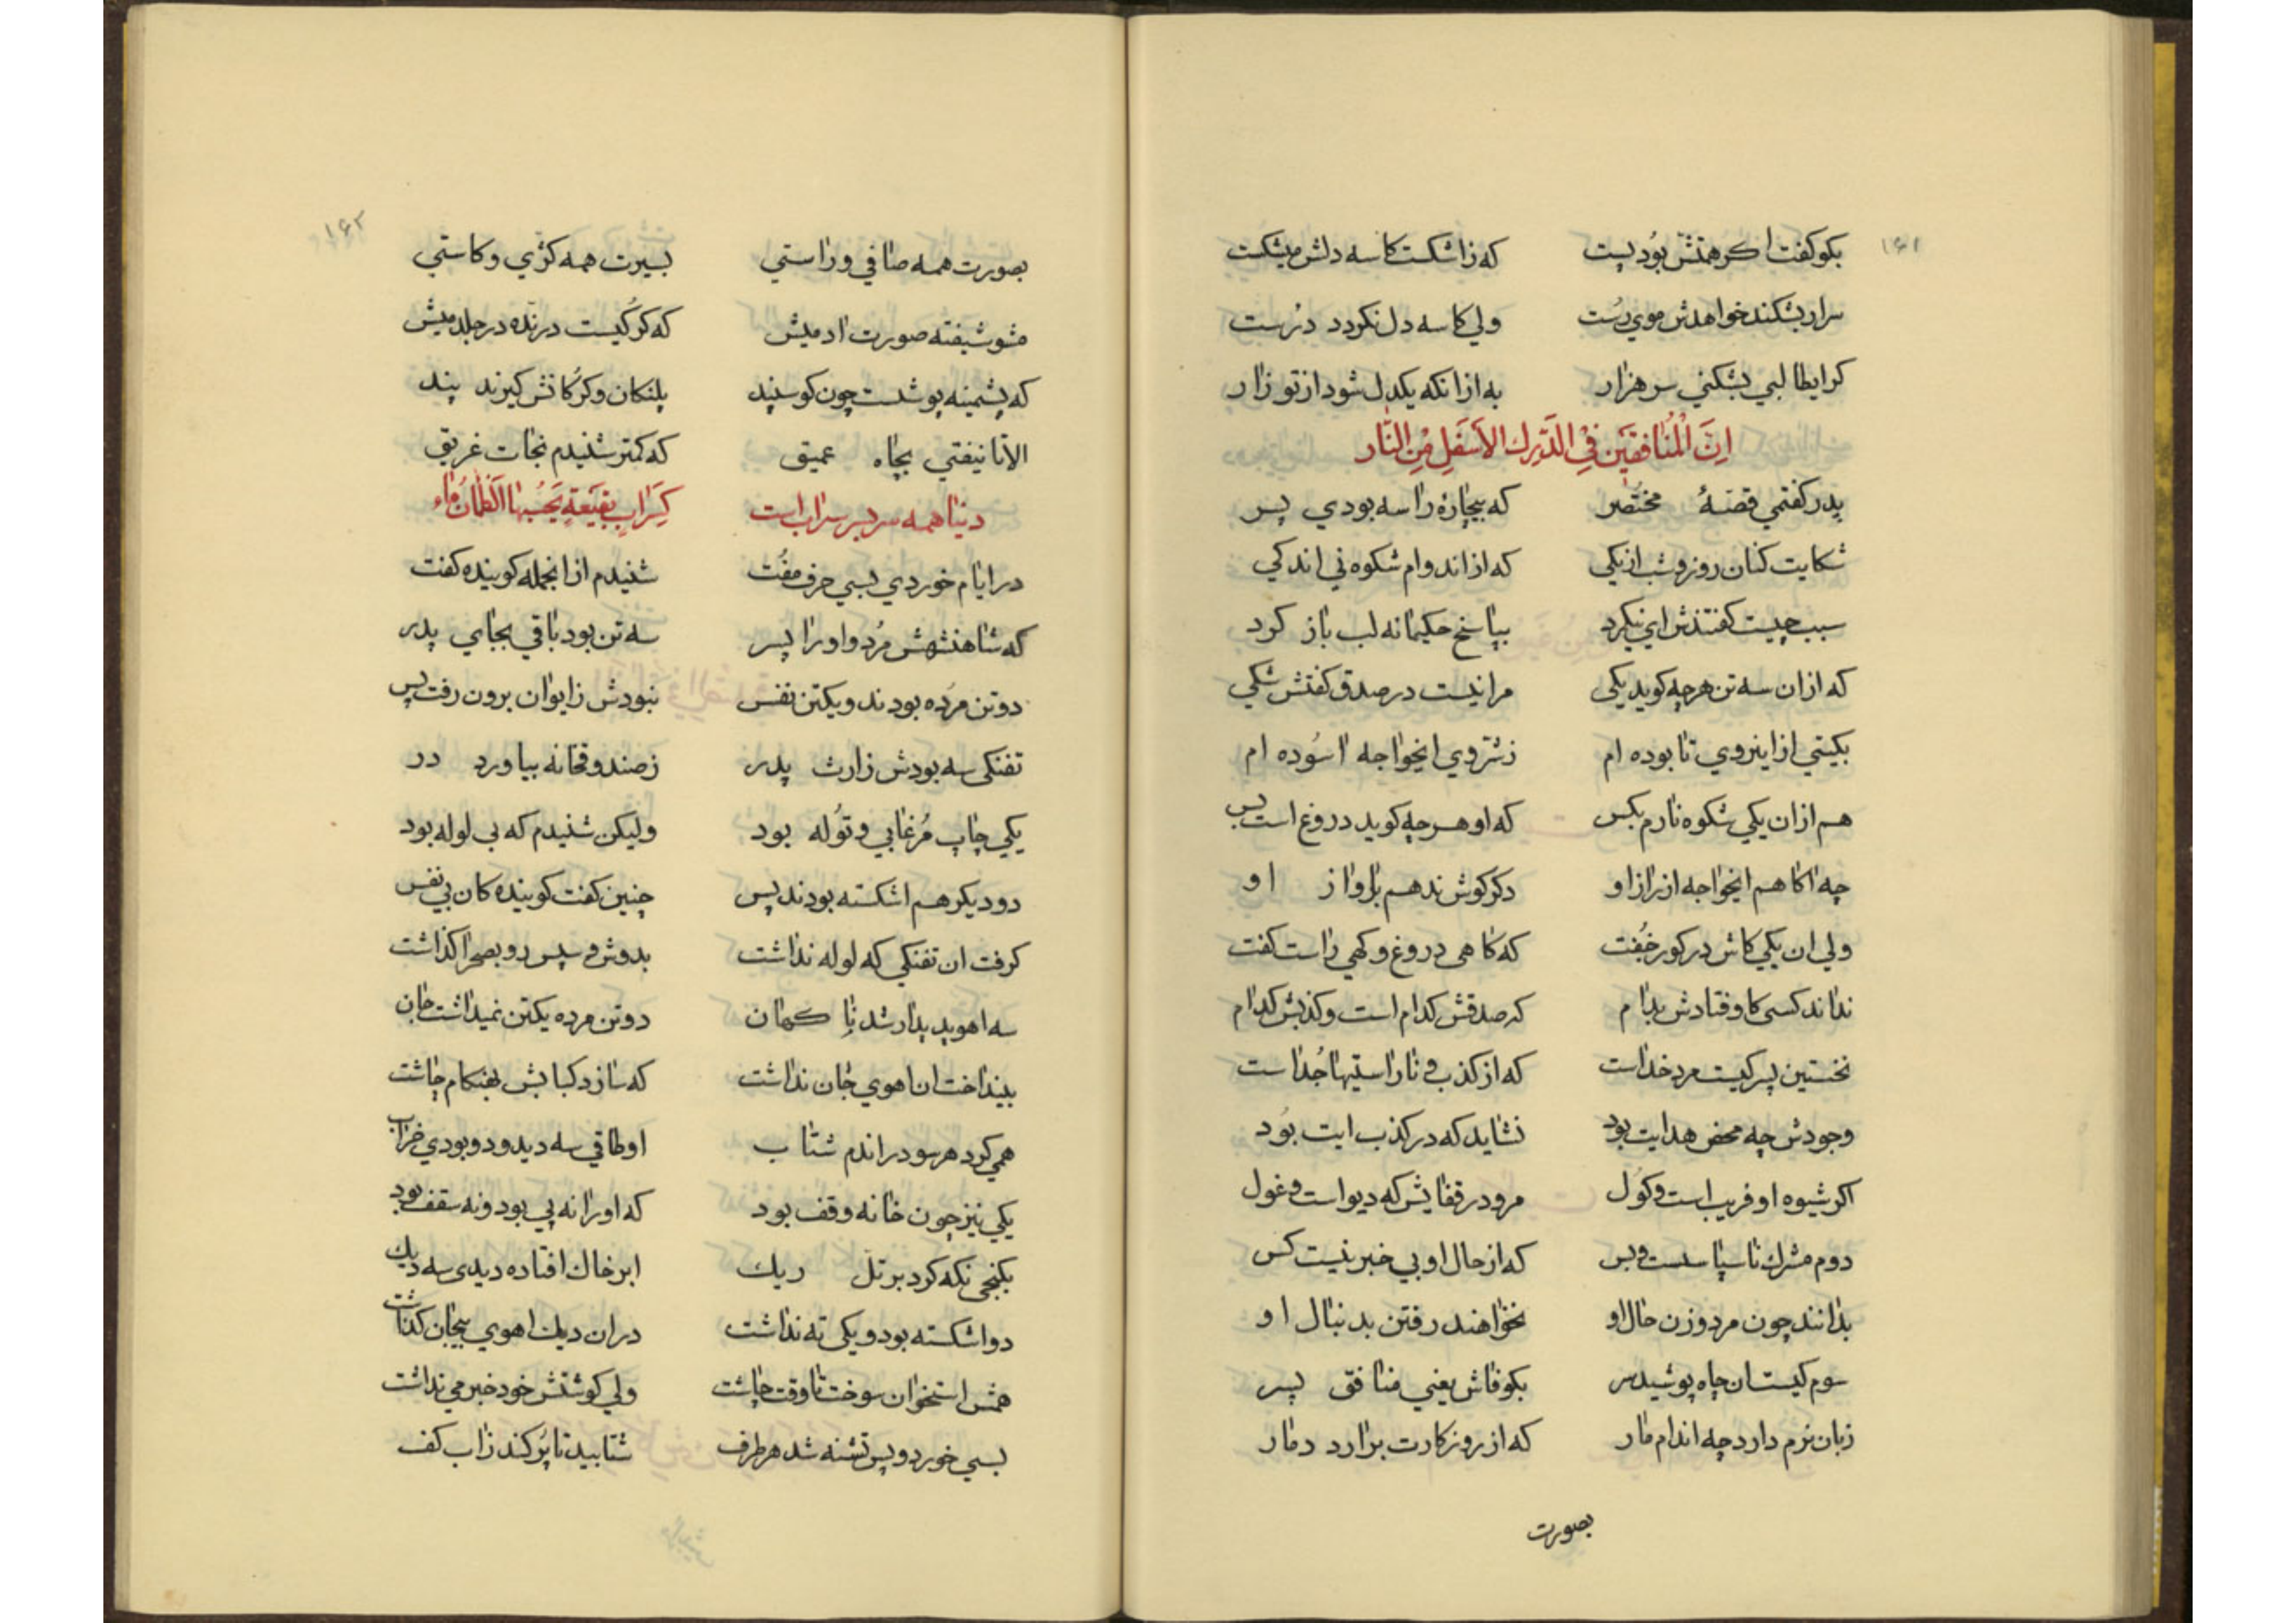 ۱۶۱
بکو کفت اکر همتش بود پست که زاشکست کاسه دلش میشکست
سرار بشکند خواهدش موی رست ولی کاسه دل نکردد درست
کرایطالبی بشکنی سر هزار به ازانکه یکدل شود از تو زار
اِنَّ الْمُنٰافِقیٖنَ فِی الدَّرِكِ الاَسفَلِ مِنَ النّٰار
پدر کفتمی قصهٔ مختصر که بیچاره را سه بودی پسر
شکایت کنان روز و شب از یکی که از اند وام شکوه نی اندکی
سبب چیست کفتندش ای نیکرد بپاسخ حکیمانه لب باز کرد
که ازان سه تن هرچه کوید یکی مرا نیست در صدق کفتش شکی
بکیتی از اینروی تا بوده ام زشر وی ایخواجه اسوده ام
هم ازان یکی شکوه نارم بکس که او هرچه کوید دروغ است بس
چه اکاهم ایخواجه از راز او دکر کوش ندهم باواز او
ولی ان یکی کاش در کور خفت که کاهی دروغ و کهی راست کفت
نداند کسی کاوفتادش بدام که صدقش کدام است و کذبش کدام
نخستین پسر کیست مرد خداست که از کذب و ناراستیها جداست
وجودش چه محض هدایت بود نشاید که در کذب ایت بود
اکر شیوه او فریب است و کول مرو در قفایش که دیو است و غول
دوم مشرك ناسپاسست و بس که از حال او بی خبر نیست کس
بدانند چون مرد و زن حال او نخواهند رفتن بدنبال او
سوم کیست ان چاه پوشیده سر بکو فاش یعنی منافق پسر
زبان نرم دارد چه اندام مار که از روزکارت برارد دمار
بصورت
۱۶۲
بصورت همه صافی و راستی بسیرت همه کژی و کاستی
مشو شیفته صورت ادمیش که کرکیست درنده در جلد میش
که پشمینه پوشست چون کوسپند پلنکان و کرکانش کیرند پند
الا تا نیفتی بچاه عمیق که کمتر شنیدم نجات غریق
دنیا همه سر بسر سرابست کَسَرٰابٍ بِقیٖعَةٍ یَحْسَبُهَا الظَّمْاٰنُ مٰاء
در ایام خوردی بسی حرف مفت شنیدم از انجمله کوینده کفت
که شاهنشهش مرد و او را پسر سه تن بود باقی بجای پدر
دو تن مرده بودند و یکتن نفس نبودش زایوان برون رفت پس
تفنکی سه بودش زارث پدر زصندوقخانه بیاورد در
یکی چاپ مرغابی و توله بود ولیکن شنیدم که بی لوله بود
دو دیکر هم اشکسته بودند پس چنین کفت کوینده کان بی نفس
کرفت ان تفنکی که لوله نداشت بدوش و سپس رو بصحرا کذاشت
سه اهو پدیدار شد با کمان دو تن مرده یکتن نمیداشت جان
بینداخت ان اهوی جان نداشت که سازد کبابش بهنکام چاشت
همی کرد هر سو در اندم شتاب اوطاقی سه دید و دو بودی خراب
یکی نیز چون خانه وقف بود که او را نه پی بود و نه سقف بود
بکنجی نکه کرد بر تل ریك ابر خاك افتاده دیدی سه دیك
دو اشکسته بود و یکی ته نداشت دران دیك اهوی بیجان کذاشت
همش استخوان سوخت تا وقت چاشت ولی کوشتش خود خبر می نداشت
بسی خورد و پس تشنه شد هر طرف شتابید تا پر کند زاب کف